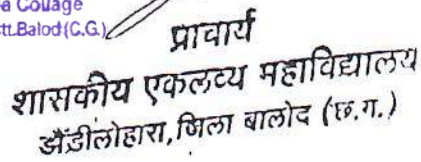 a Couage
tt.Balod(C.G.)
प्राचार्य
शासकीय एकलव्य महाविद्यालय
डौंडीलोहारा, जिला बालोद (छ.ग.)